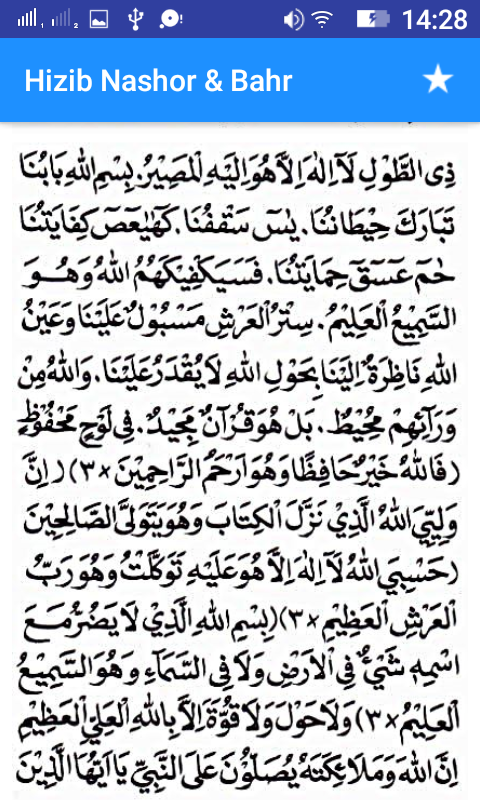 14:28
Hizib Nashor & Bahr
ذِى الطَّوْلِ لَآ اِلٰهَ اِلَّا هُوَ اِلَيْهِ الْمَصِيْرُ. بِسْمِ اللهِ بَابُنَا
تَبَارَكَ حِيْطَانُنَا. يٰسٓ سَقْفُنَا. كٓهٰيٰعٓصٓ كِفَايَتُنَا
حٰمٓ عٓسٓقٓ حِمَايَتُنَا. فَسَيَكْفِيْكَهُمُ اللهُ وَهُوَ
السَّمِيْعُ الْعَلِيْمُ. سِتْرُ الْعَرْشِ مَسْبُوْلٌ عَلَيْنَا وَعَيْنُ
اللهِ نَاظِرَةٌ اِلَيْنَا بِحَوْلِ اللهِ لَا يُقْدَرُ عَلَيْنَا. وَاللهُ مِنْ
وَرَآئِهِمْ مُحِيْطٌ. بَلْ هُوَ قُرْآنٌ مَجِيْدٌ. فِى لَوْحٍ مَحْفُوْظٍ
(فَاللهُ خَيْرٌ حَافِظًا وَهُوَ اَرْحَمُ الرَّاحِمِيْنَ ×٣) (اِنَّ
وَلِيِّيَ اللهُ الَّذِيْ نَزَّلَ الْكِتَابَ وَهُوَ يَتَوَلَّى الصَّالِحِيْنَ
(حَسْبِيَ اللهُ لَآ اِلٰهَ اِلَّا هُوَ عَلَيْهِ تَوَكَّلْتُ وَهُوَ رَبُّ
الْعَرْشِ الْعَظِيْمِ ×٣) (بِسْمِ اللهِ الَّذِيْ لَا يَضُرُّ مَعَ
اسْمِهِ شَيْءٌ فِى الْاَرْضِ وَلَا فِى السَّمَآءِ وَهُوَ السَّمِيْعُ
الْعَلِيْمُ ×٣) وَلَا حَوْلَ وَلَا قُوَّةَ اِلَّا بِاللهِ الْعَلِيِّ الْعَظِيْمِ
اِنَّ اللهَ وَمَلَائِكَتَهُ يُصَلُّوْنَ عَلَى النَّبِيِّ يَا اَيُّهَا الَّذِيْنَ